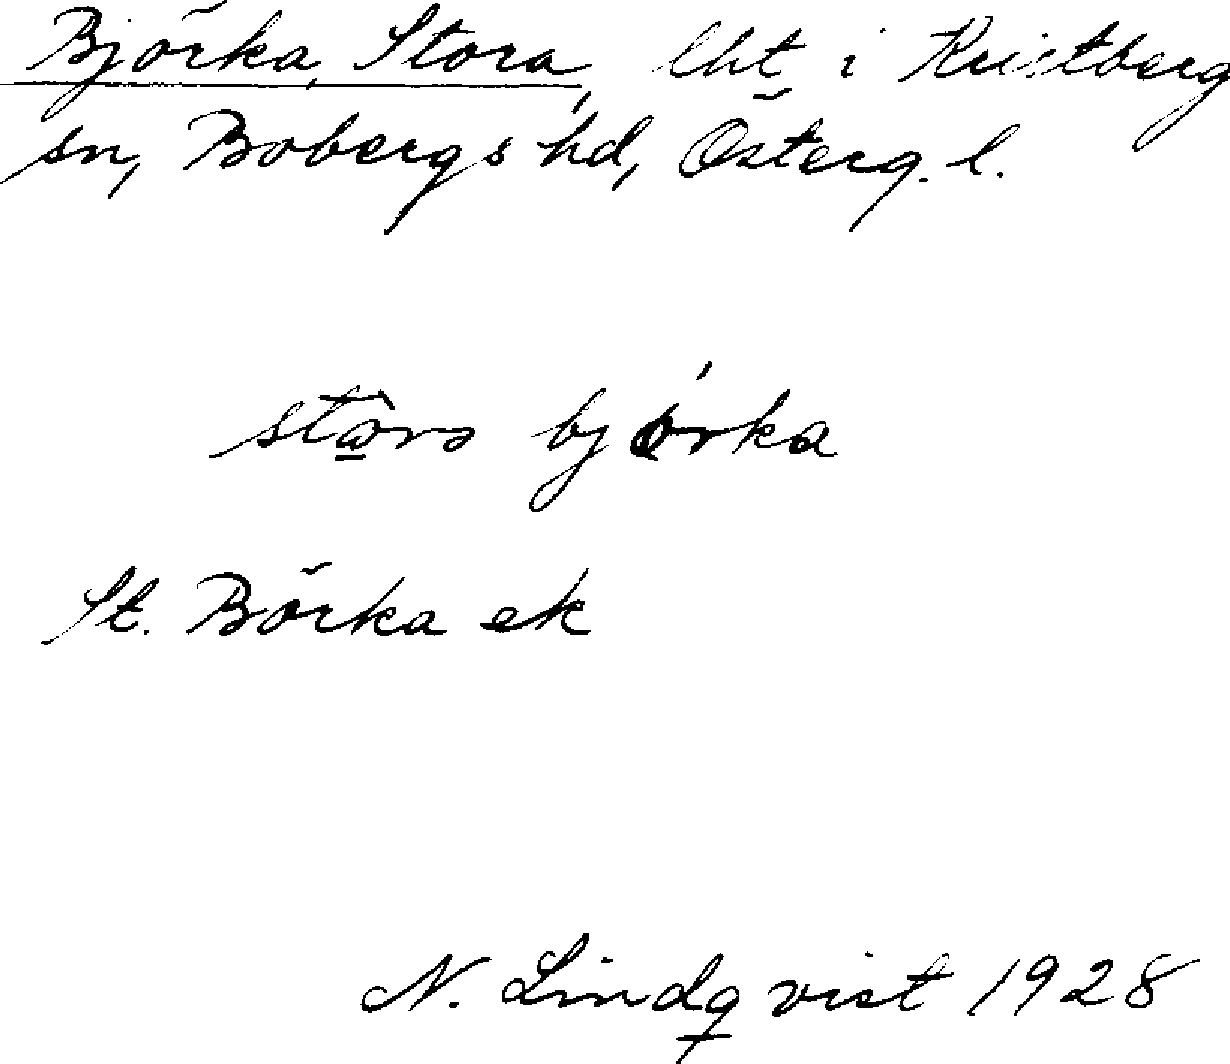 Björka, Stora, lht i Kristberg
sn, Bobergs hd, Österg. l.
stơrơ bjơrka
St. Börka ek
N. Lindqvist 1928